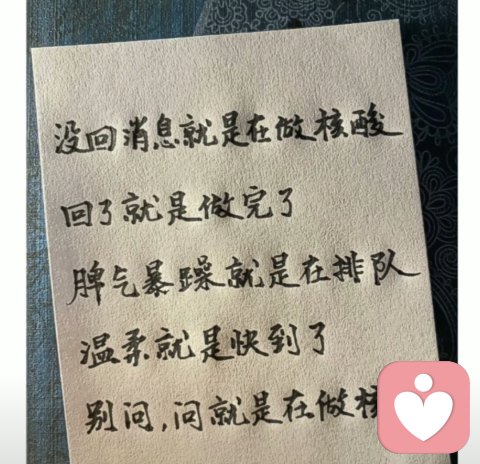 没回消息就是在做核酸
回了就是做完了
脾气暴躁就是在排队
温柔就是快到了
别问,问就是在做核